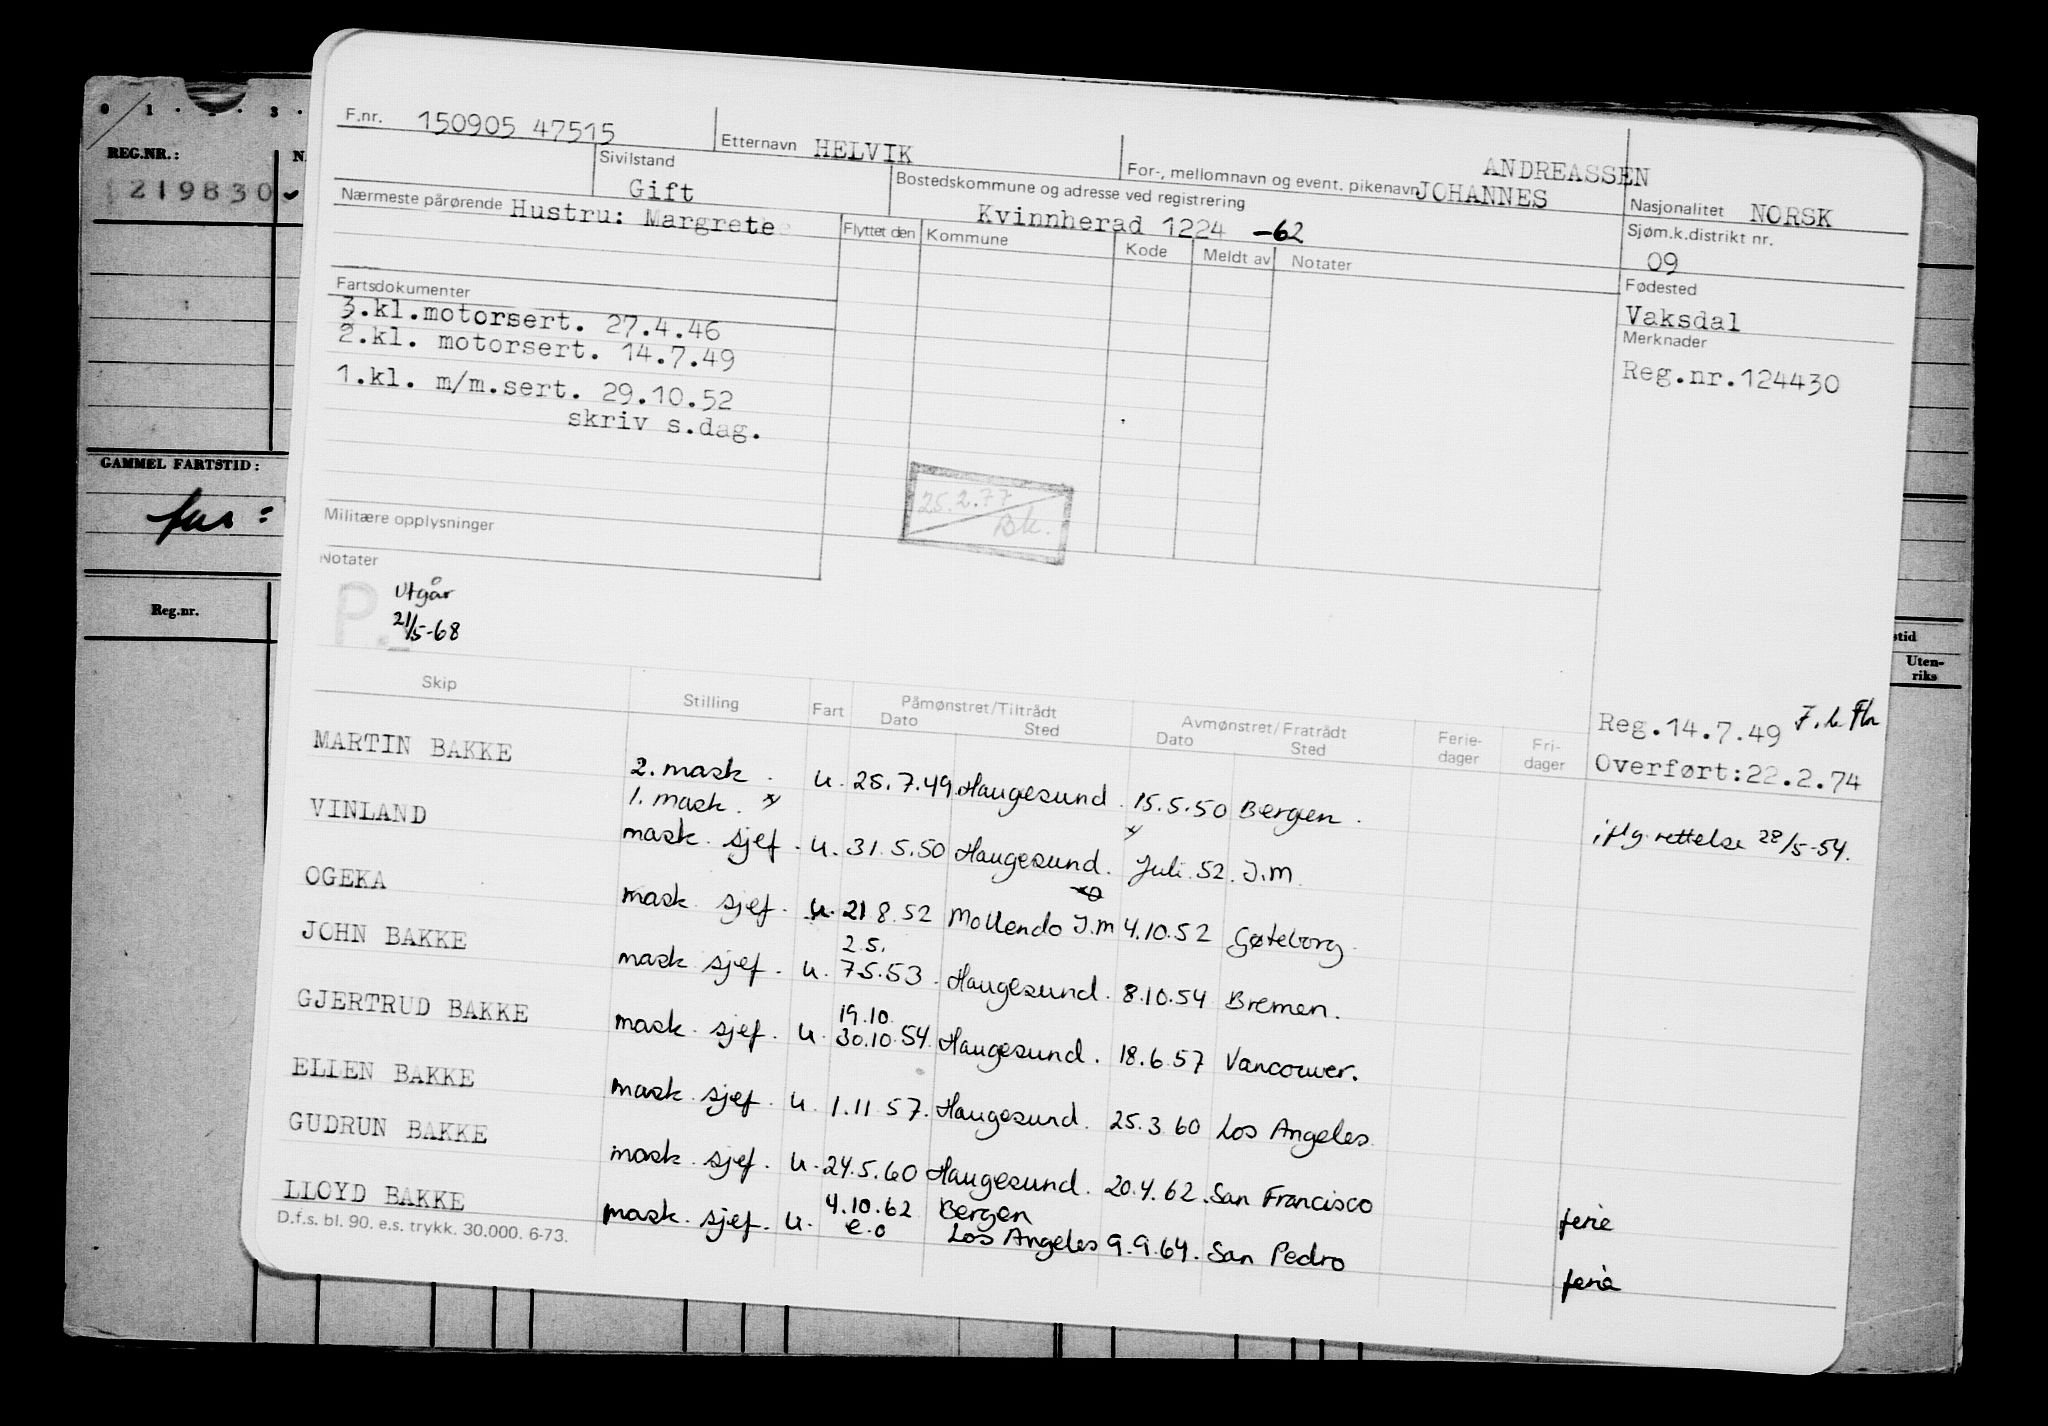 0 1 . 2 . 3 .
REG.NR.:
219830
GAMMEL FARTSTID:
Reg.nr.
stid
Uten-
riks
F.nr. 150905 47515 Etternavn HELVIK For-, mellomnavn og event. pikenavn ANDREASSEN
JOHANNES
Sivilstand Gift
Bostedskommune og adresse ved registrering
Kvinnherad 1224 -62
Nasjonalitet NORSK
Nærmeste pårørende Hustru: Margrete
Flyttet den Kommune Kode Meldt av Notater
Sjøm.k.distrikt nr.
09
Fødested
Vaksdal
Merknader
Reg.nr.124430
Fartsdokumenter
3.kl.motorsert. 27.4.46
2.kl. motorsert. 14.7.49
1.kl. m/m.sert. 29.10.52
skriv s.dag.
25.2.77
Bk.
Militære opplysninger
Notater
P.
Utgår
21/5-68
Skip Stilling Fart Påmønstret/Tiltrådt Avmønstret/Fratrådt Ferie-dager Fri-dager
Dato Sted Dato Sted
Reg.14.7.49
Overført:22.2.74
MARTIN BAKKE 2. mask. u. 25.7.49 Haugesund. 15.5.50 Bergen.
1. mask. x
VINLAND mask. sjef. u. 31.5.50 Haugesund. Juli 52. I.M. iflg. rettelse 28/5-54.
OGEKA mask. sjef. u. 21 8.52 Mollendo I.M 4.10.52 Gøteborg.
JOHN BAKKE mask. sjef. u. 2.5.
7.5.53. Haugesund. 8.10.54 Bremen.
GJERTRUD BAKKE mask. sjef. u. 19.10.
30.10.54. Haugesund. 18.6.57 Vancouver.
ELLEN BAKKE mask. sjef. u. 1.11.57. Haugesund. 25.3.60 Los Angeles.
GUDRUN BAKKE mask. sjef. u. 24.5.60 Haugesund. 20.4.62. San Francisco ferie
LLOYD BAKKE mask. sjef. u. 4.10.62 Bergen
e.o Los Angeles 9.9.64. San Pedro ferie
D.f.s. bl. 90. e.s. trykk. 30.000. 6-73.